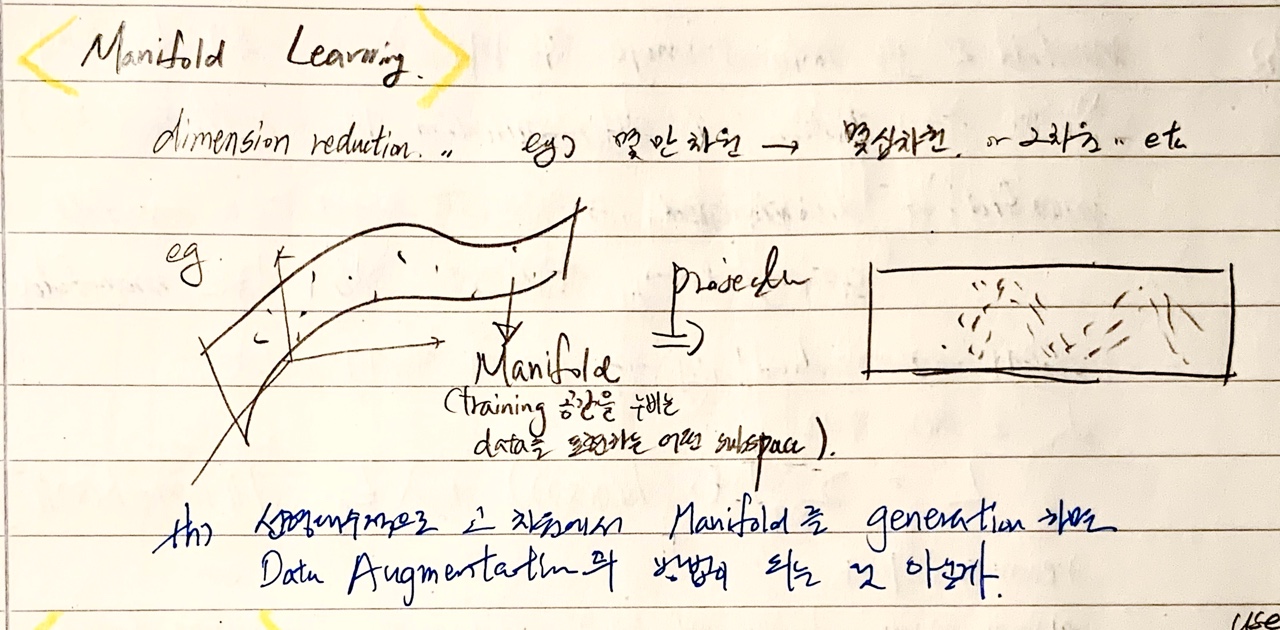 Manifold Learning.
dimension reduction. .. eg) 몇 만 차원 → 몇십차원. or 2차원 .. etc
eg.
projection
⇒
Manifold
(training 공간을 누비는
data를 표현하는 어떤 subspace).
th) 선형대수적으로 고 차원에서 Manifold를 generation 하면
Data Augmentation의 방법이 되는 것 아닌가.
use